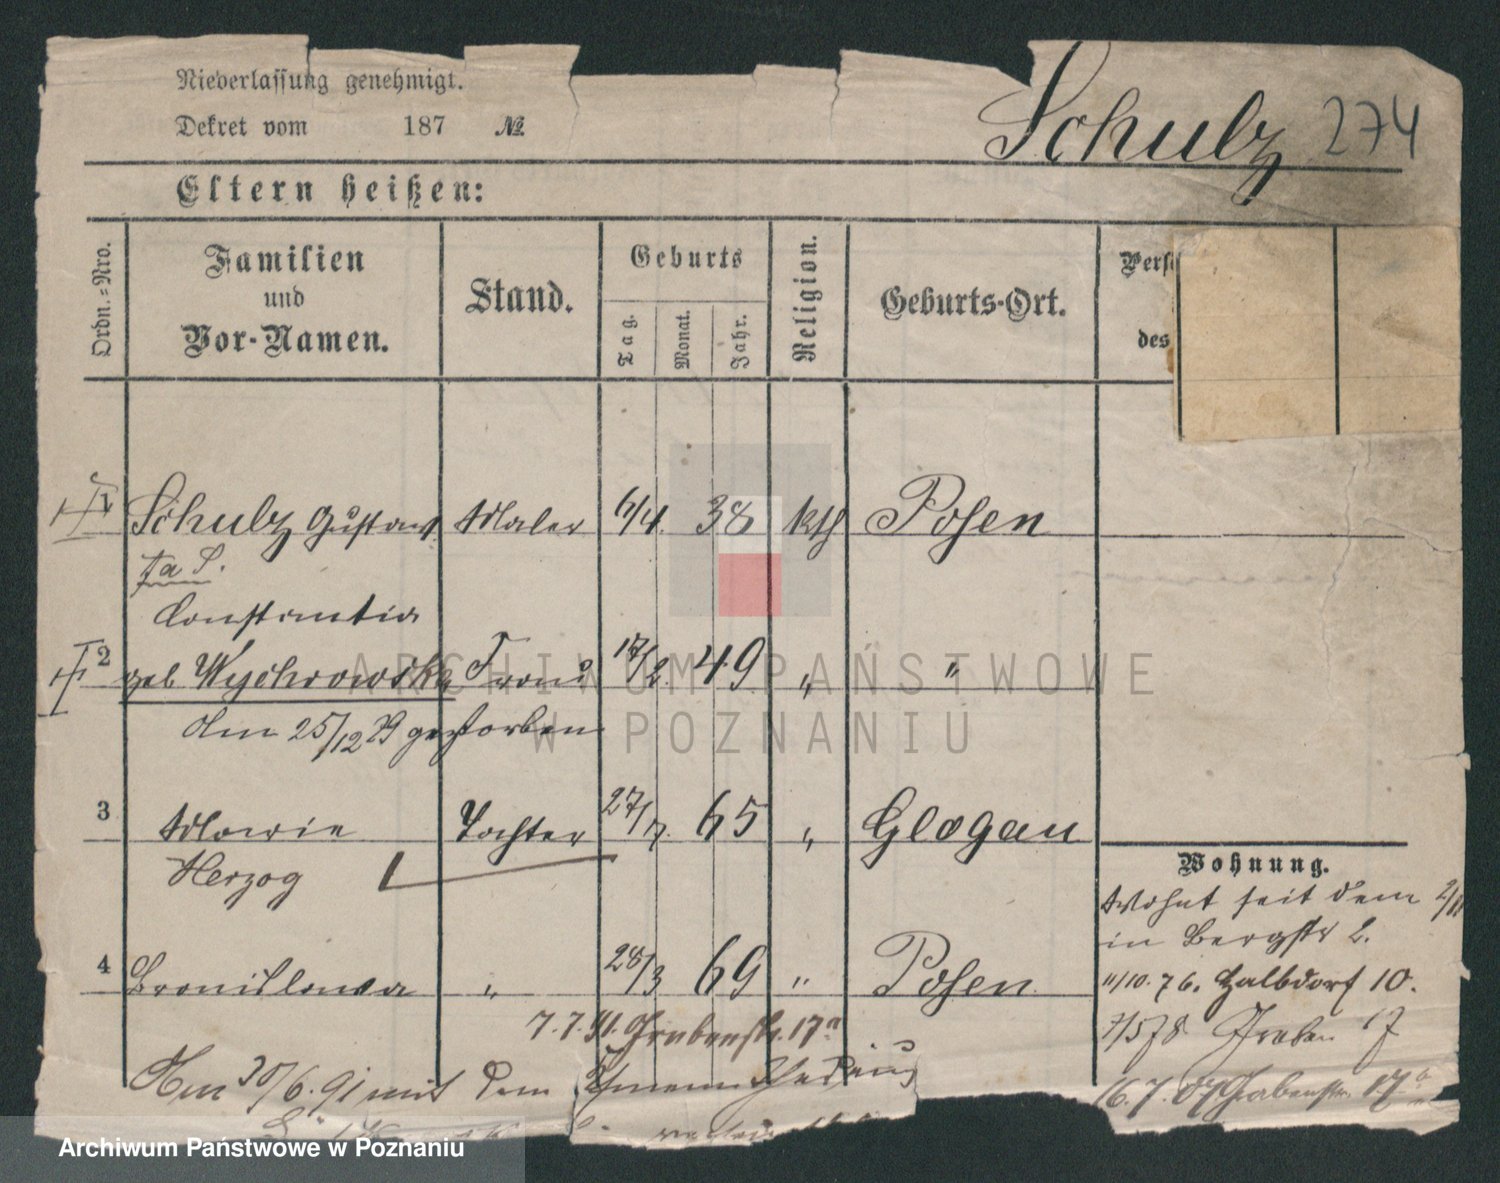 Niederlassung genehmigt.
Dekret vom 187 №
Schulz 274
Eltern heißen:
Ordn.-Nro.
Familien
und
Vor-Namen.
Stand.
Geburts
Tag.
Monat.
Jahr.
Religion.
Geburts-Ort.
Pers
des
1 Schulz Gustav Maler 6/4. 38 kth Posen
Constantia
2 geb Wychrowska Frau 17/2. 49 " "
Am 25/12 79 gestorben
3 Marie Tochter 27/7. 65 " Glogau
Herzog
Wohnung.
Wohnt seit dem 2/11
in Bergstr 2.
4 Bronislawa " 28/3 69 " Posen
11/10. 76. Halbdorf 10.
7.7.81. Grabenstr. 17a
7/5 78 Graben 17
Am 30/6. 91 mit dem
16.7.07 Grabenstr. 17
ARCHIWUM PAŃSTWOWE
W POZNANIU
Archiwum Państwowe w Poznaniu